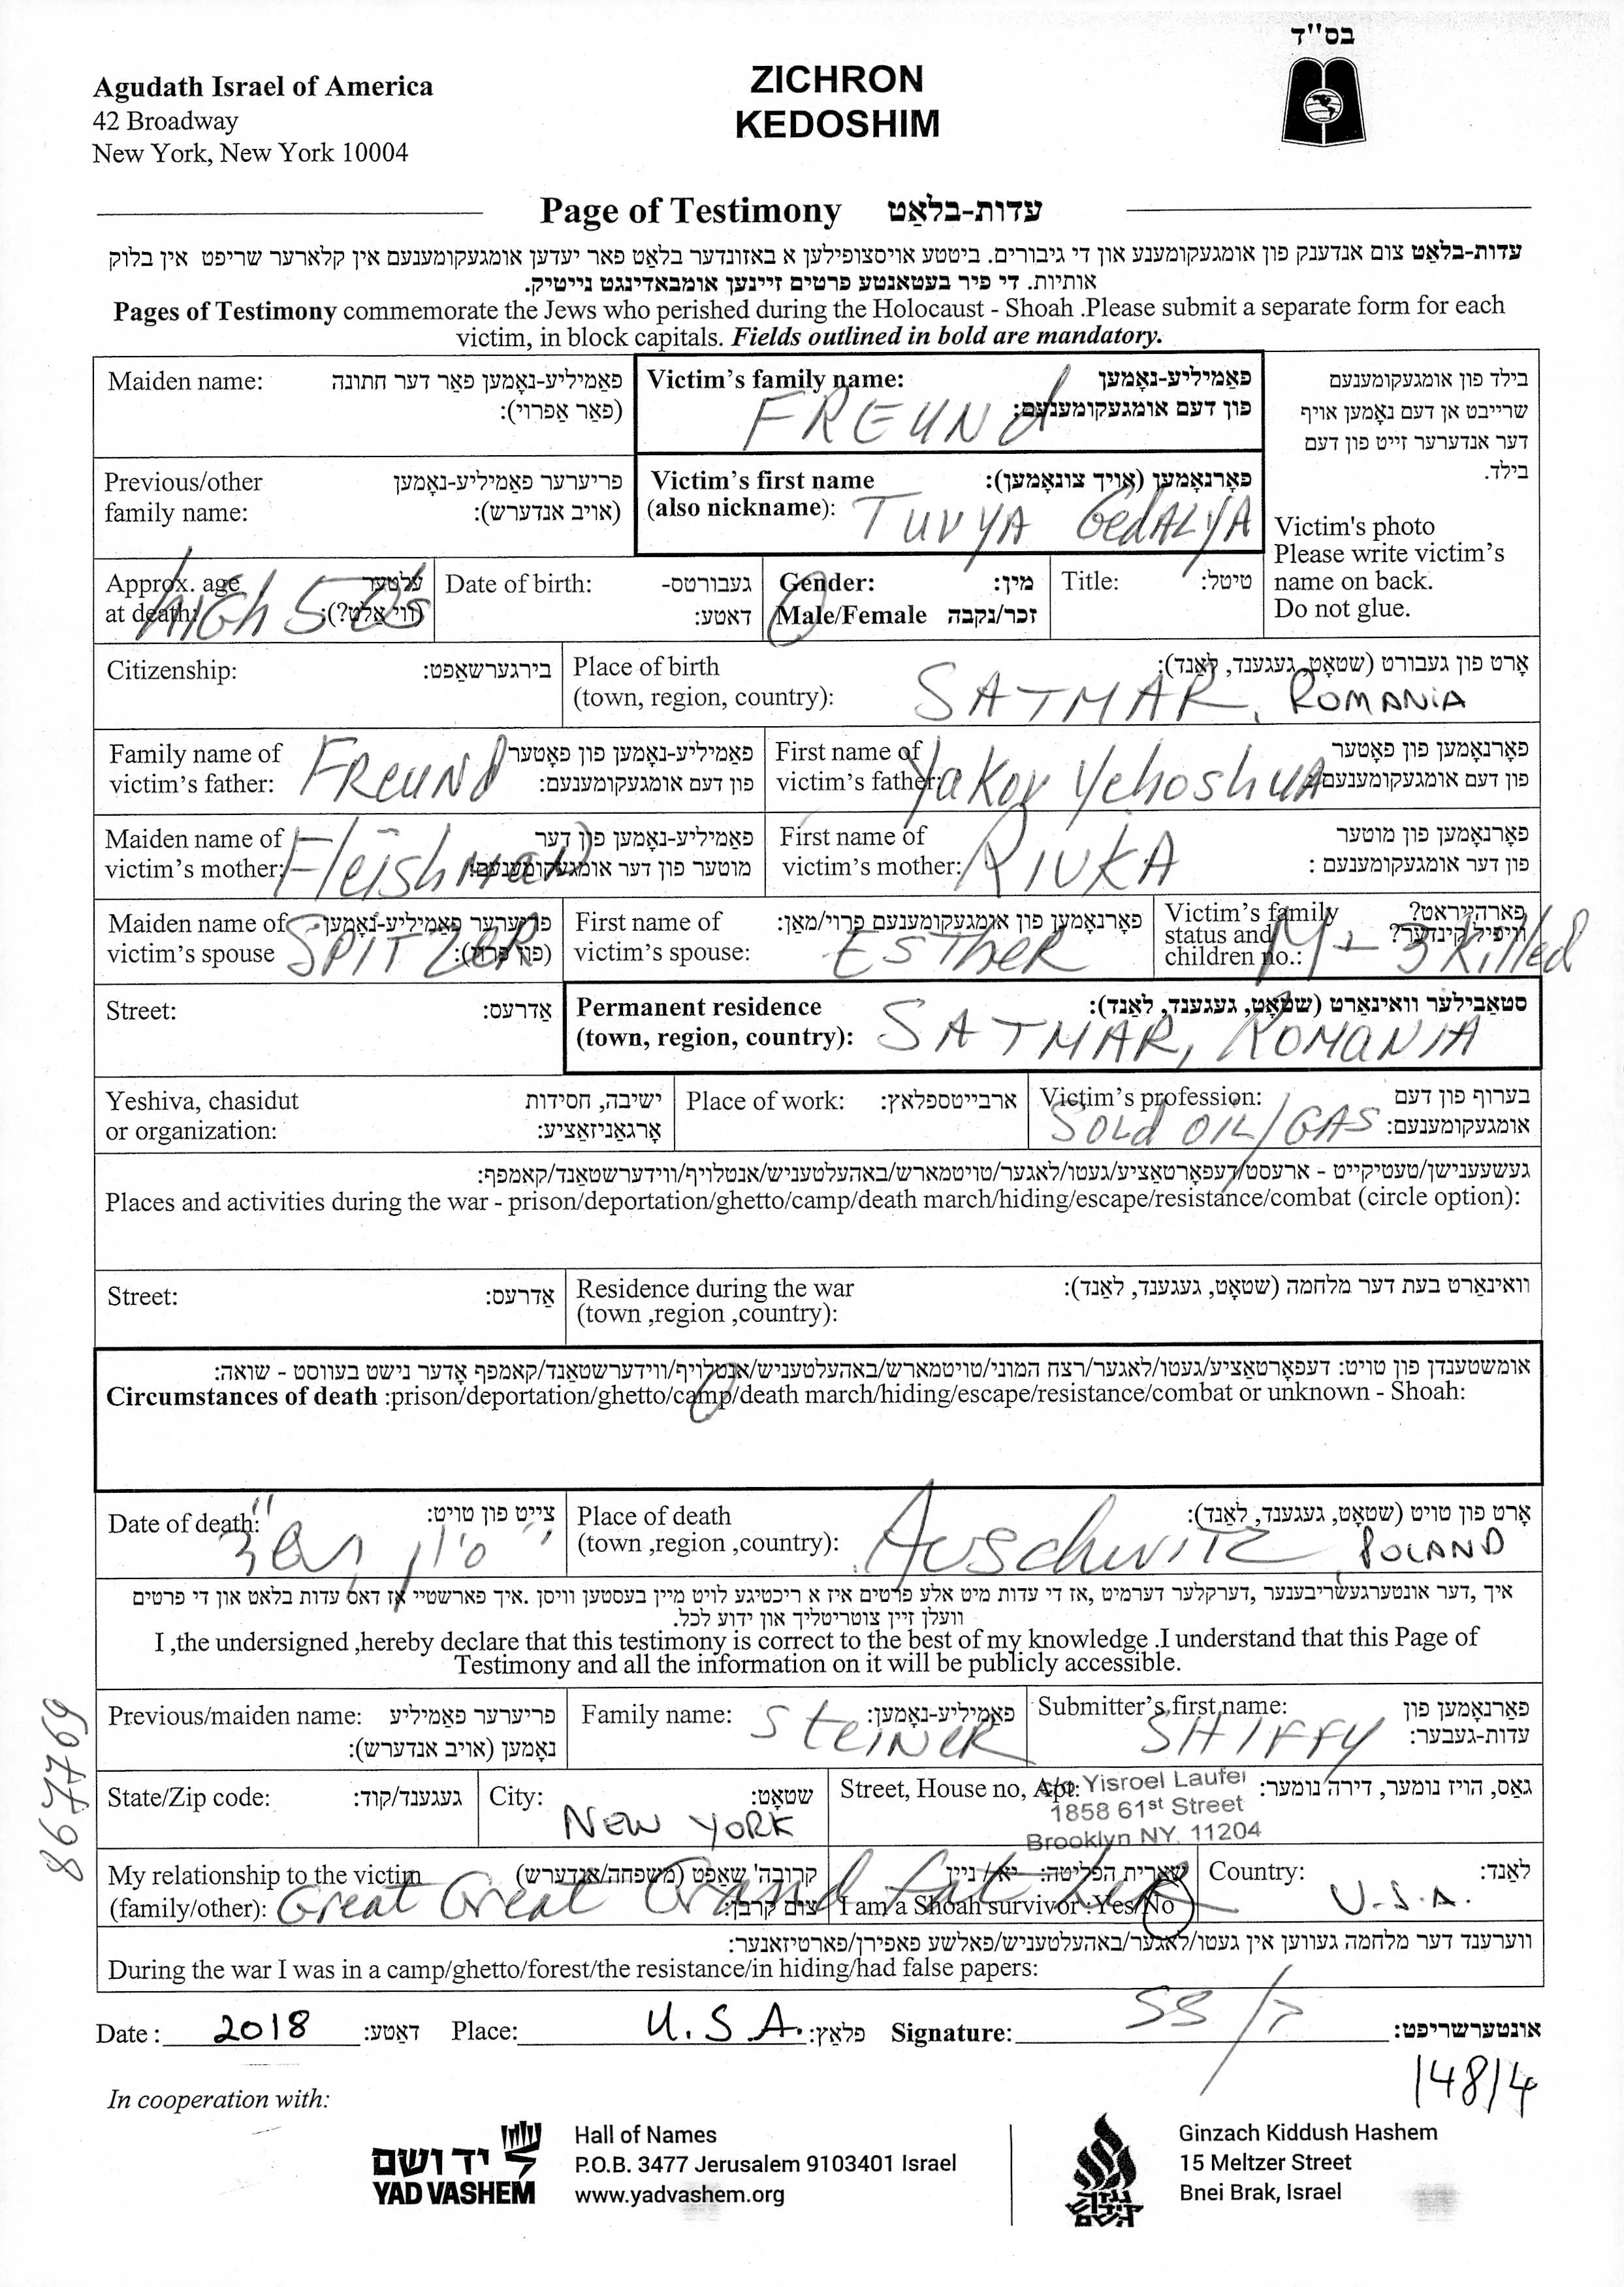 בס"ד
Agudath Israel of America
42 Broadway
New York, New York 10004
ZICHRON
KEDOSHIM
Page of Testimony עדות-בלאַט
עדות-בלאַט צום אנדענק פון אומגעקומענע און די גיבורים. ביטע אויסצופילען א באזונדער בלאַט פאר יעדען אומגעקומענעם אין קלארער שריפט אין בלוק
אותיות. די פיר בעטאנטע פרטים זיינען אומבאדינגט נייטיק.
Pages of Testimony commemorate the Jews who perished during the Holocaust - Shoah .Please submit a separate form for each
victim, in block capitals. Fields outlined in bold are mandatory.
Maiden name: פאַמיליע-נאָמען פאַר דער חתונה
(פאַר אַפרוי):
Victim's family name: פאַמיליע-נאָמען
פון דעם אומגעקומענעם:
FREUNd
בילד פון אומגעקומענעם
שרייבט אן דעם נאָמען אויף
דער אנדערער זייט פון דעם
בילד.
Victim's photo
Please write victim's
name on back.
Do not glue.
Previous/other פריערער פאַמיליע-נאָמען
family name: (אויב אנדערש):
Victim's first name פאָרנאָמען (אויך צונאָמען):
(also nickname): TUVYA GedALYA
Approx. age עלטער
at death: (ווי אַלט?):
high 50s
Date of birth: געבורטס-
דאַטע:
Gender: מין:
Male/Female זכר/נקבה
Title: טיטל:
Citizenship: בירגערשאַפט:
Place of birth אָרט פון געבורט (שטאָט, געגענד, לאַנד):
(town, region, country): SATMAR, ROMANIA
Family name of פאַמיליע-נאָמען פון פאָטער
victim's father: פון דעם אומגעקומענעם:
FReUNd
First name of פאָרנאָמען פון פאָטער
victim's father: פון דעם אומגעקומענעם
Yakov Yehoshua
Maiden name of פאַמיליע-נאָמען פון דער
victim's mother: מוטער פון דער אומגעקומענעם:
Fleishman
First name of פאָרנאָמען פון מוטער
victim's mother: פון דער אומגעקומענעם :
RIVKA
Maiden name of פריערער פאַמיליע-נאָמען
victim's spouse (פון פרוי):
SPITZER
First name of פאָרנאָמען פון אומגעקומענעם פרוי/מאַן:
victim's spouse: ESTheR
Victim's family פארהייראט?
status and וויפיל קינדער?
children no.: M - 3 killed
Street: אַדרעס:
Permanent residence סטאַבילער וואוינאָרט (שטאָט, געגענד, לאַנד):
(town, region, country): SATMAR, ROMANIA
Yeshiva, chasidut ישיבה, חסידות
or organization: אָרגאַניזאַציע:
Place of work: ארבייטספלאץ:
Victim's profession: בערוף פון דעם
אומגעקומענעם: SOLd OIL/GAS
געשעענישן/טעטיקייט - ארעסט/דעפאָרטאַציע/געטו/לאגער/טויטמארש/באהעלטעניש/אנטלויף/ווידערשטאַנד/קאמפף:
Places and activities during the war - prison/deportation/ghetto/camp/death march/hiding/escape/resistance/combat (circle option):
Street: אַדרעס:
Residence during the war וואוינארט בעת דער מלחמה (שטאָט, געגענד, לאַנד):
(town ,region ,country):
אומשטענדן פון טויט: דעפאָרטאַציע/געטו/לאגער/רצח המוני/טויטמארש/באהעלטעניש/אנטלויף/ווידערשטאַנד/קאמפף אָדער נישט בעוווסט - שואה:
Circumstances of death :prison/deportation/ghetto/camp/death march/hiding/escape/resistance/combat or unknown - Shoah:
Date of death: צייט פון טויט:
Place of death אָרט פון טויט (שטאָט, געגענד, לאַנד):
(town ,region ,country): Auschwitz POLAND
איך ,דער אונטערגעשריבענער ,דערקלער דערמיט ,אז די עדות מיט אלע פרטים איז א ריכטיגע לויט מיין בעסטען וויסן .איך פארשטיי אז דאס עדות בלאט און די פרטים
וועלן זיין צוטריטליך און ידוע לכל.
I ,the undersigned ,hereby declare that this testimony is correct to the best of my knowledge .I understand that this Page of
Testimony and all the information on it will be publicly accessible.
Previous/maiden name: פריערער פאַמיליע
נאָמען (אויב אנדערש):
Family name: פאַמיליע-נאָמען:
SteINeR
Submitter's first name: פאָרנאָמען פון
עדות-געבער:
SHIFFY
State/Zip code: געגענד/קוד:
City: שטאָט:
NEW YORK
Street, House no, Apt: גאַס, הויז נומער, דירה נומער:
c/o Yisroel Laufer
1858 61st Street
Brooklyn NY. 11204
My relationship to the victim קרובה'שאַפט (משפחה/אנדערש)
(family/other): צום קרבן:
Great Great Grandfather
שארית הפליטה: יא/ניין
I am a Shoah survivor :Yes/No
Country: לאַנד:
U.S.A.
ווערענד דער מלחמה געווען אין געטו/לאגער/באהעלטעניש/פאלשע פאפירן/פארטיזאנער:
During the war I was in a camp/ghetto/forest/the resistance/in hiding/had false papers:
Date : 2018 דאַטע: Place: U.S.A. פלאַץ: Signature: אונטערשריפט:
148/4
867769
In cooperation with:
יד ושם
YAD VASHEM
Hall of Names
P.O.B. 3477 Jerusalem 9103401 Israel
www.yadvashem.org
גנזך
קידוש
השם
Ginzach Kiddush Hashem
15 Meltzer Street
Bnei Brak, Israel